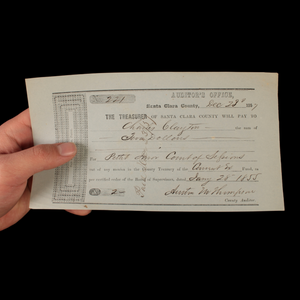 AUDITOR'S OFFICE,
No. 221
Santa Clara County, Dec 28th 1857
THE TREASURER OF SANTA CLARA COUNTY WILL PAY TO
Charles Clayton the sum of
Two Dollars
For Petit Juror Court of Sessions
out of any money in the County Treasury of the Current Ex Fund, as
per certified order of the Board of Supervisors, dated Jany 26 1858
$ 2.00
County Auditor.